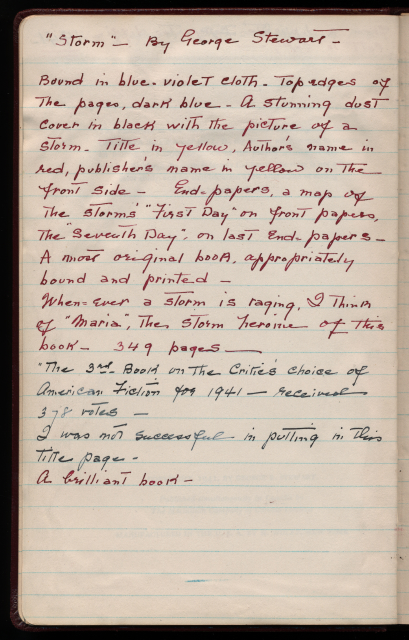 "Storm" - By George Stewart -
Bound in blue-violet cloth - Top edges of
the pages, dark blue - A stunning dust
cover in black with the picture of a
storm - Title in yellow, Author's name in
red, publisher's name in yellow on the
front side - End-papers, a map of
the storms' "First Day" on front papers,
the "Seventh Day", on last End-papers -
A most original book, appropriately
bound and printed -
When-ever a storm is raging, I think
of "Maria", the storm heroine of this
book - 349 pages -
"The 3rd Book on the Critic's choice of
American Fiction for 1941 - received
378 votes -
I was not successful in putting in this
title page -
A brilliant book -